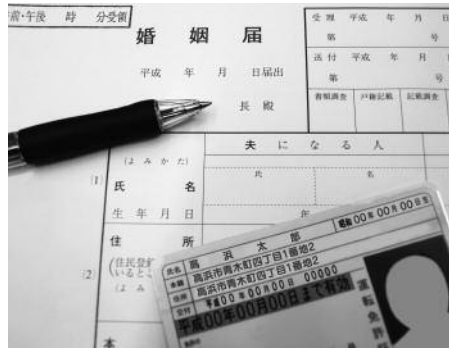 午前・午後 時 分受領
婚姻届
平成 年 月 日届出
長殿
受理 平成 年 月 日
第 号
送付 平成 年 月 日
第 号
書類調査 戸籍記載 記載調査
夫になる人
(よみかた)
(1)
氏 名
氏 名
生年月日
年
住所
(住民登録
いるとこ
(よみ
(2)
本
氏名 高浜太郎
昭和00年00月00日生
本籍 高浜市青木町四丁目1番地2
住所 高浜市青木町四丁目1番地2
交付 平成00年00月00日 00000
平成00年00月00日まで有効
運転免許